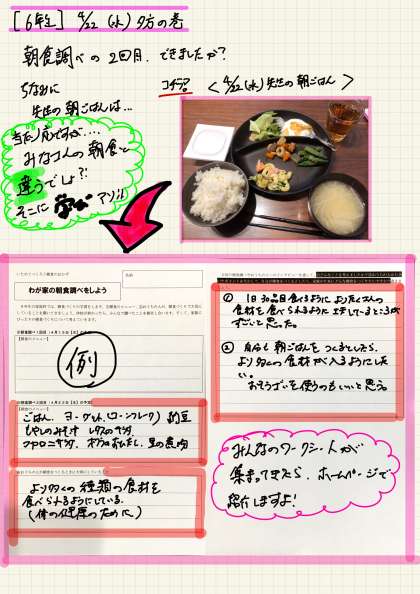 [6年生] 4/22 (水) 夕方の巻
朝食調べの2回目、できましたか?
ちなみに
先生の朝ごはんは...
コチラ。
< 4/22(水) 先生の朝ごはん >
当たり前ですが....
みなさんの朝食と
違うでしょ?!
そこに 学び アリ!!
わが家の朝食調べをしよう
例
ごはん、ヨーグルト(コーンフレーク) 納豆
もやしのみそ汁 レタスのサラダ
マカロニサラダ、オクラのおひたし、豆の煮肉
より多くの種類の食材を
食べられるようにしている。
(体の健康のために)
① 1日30品目食べるように よりたくさんの
食材を食べられるように工夫しているところが
すごいと思った。
② 自分も朝ごはんをつくるとしたら、
より多くの食材が入るようにした
い。
おそうざいを使うのもいいと思う。
みんなのワークシートが
集まってきたら、ホームページで
紹介しますよ!